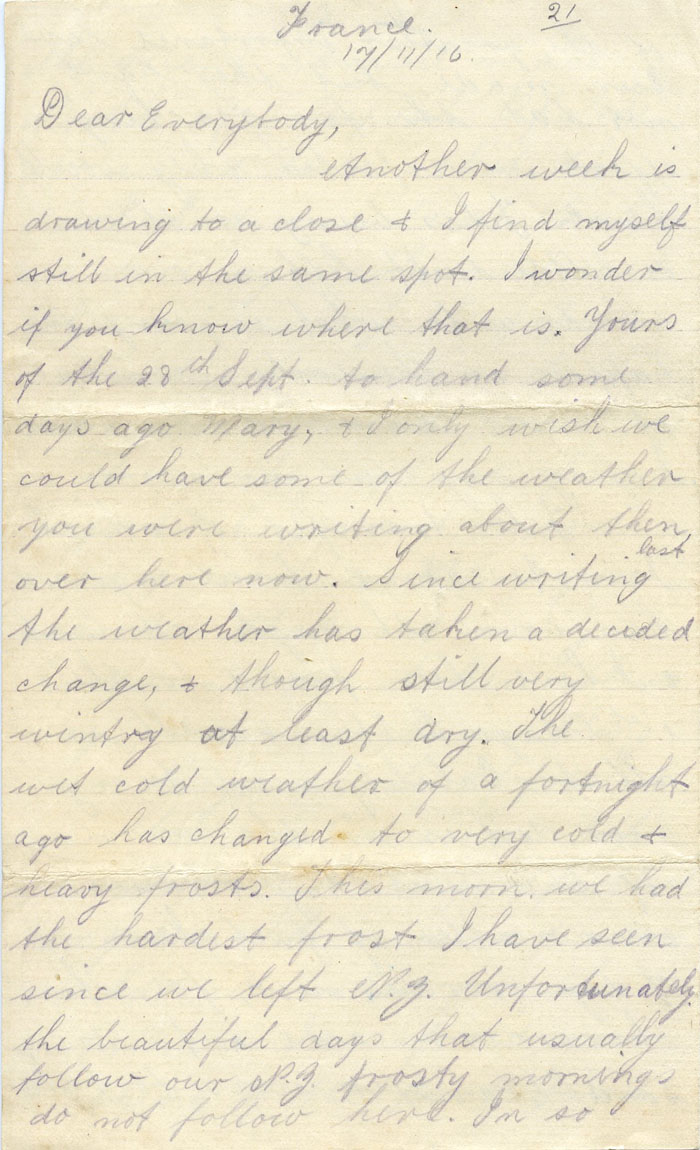 France.
21
17/11/16.
Dear Everybody,
Another week is
drawing to a close & I find myself
still in the same spot. I wonder
if you know where that is. Yours
of the 28th Sept. to hand some
days ago Mary, & I only wish we
could have some of the weather
you were writing about then,
last
over here now. Since writing
the weather has taken a decided
change, & though still very
wintry at least dry. The
wet cold weather of a fortnight
ago has changed to very cold &
heavy frosts. This morn. we had
the hardest frost I have seen
since we left N.Z. Unfortunately
the beautiful days that usually
follow our N.Z. frosty mornings
do not follow here. In so